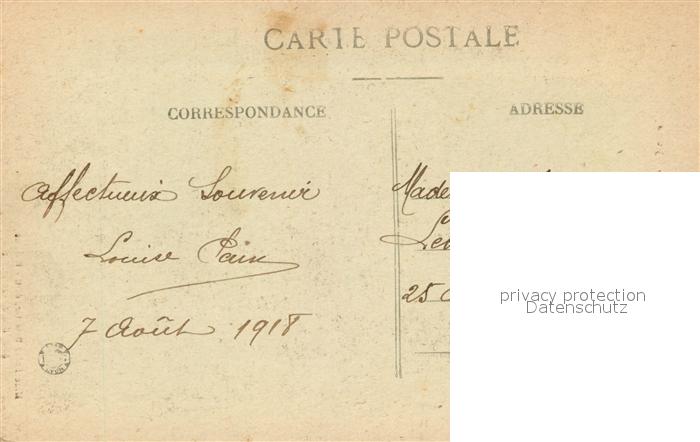 CARTE POSTALE
CORRESPONDANCE
ADRESSE
Affectueux Souvenir
Louise
7 Août 1918
25
privacy protection
Datenschutz